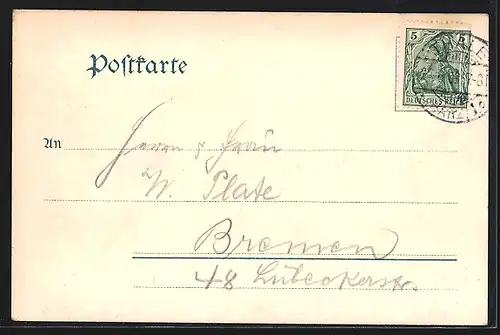 5 5
DEUTSCHES REICH
Postkarte
An Herrn & Frau
W. Plate
Bremen
48 Lübeckerstr.